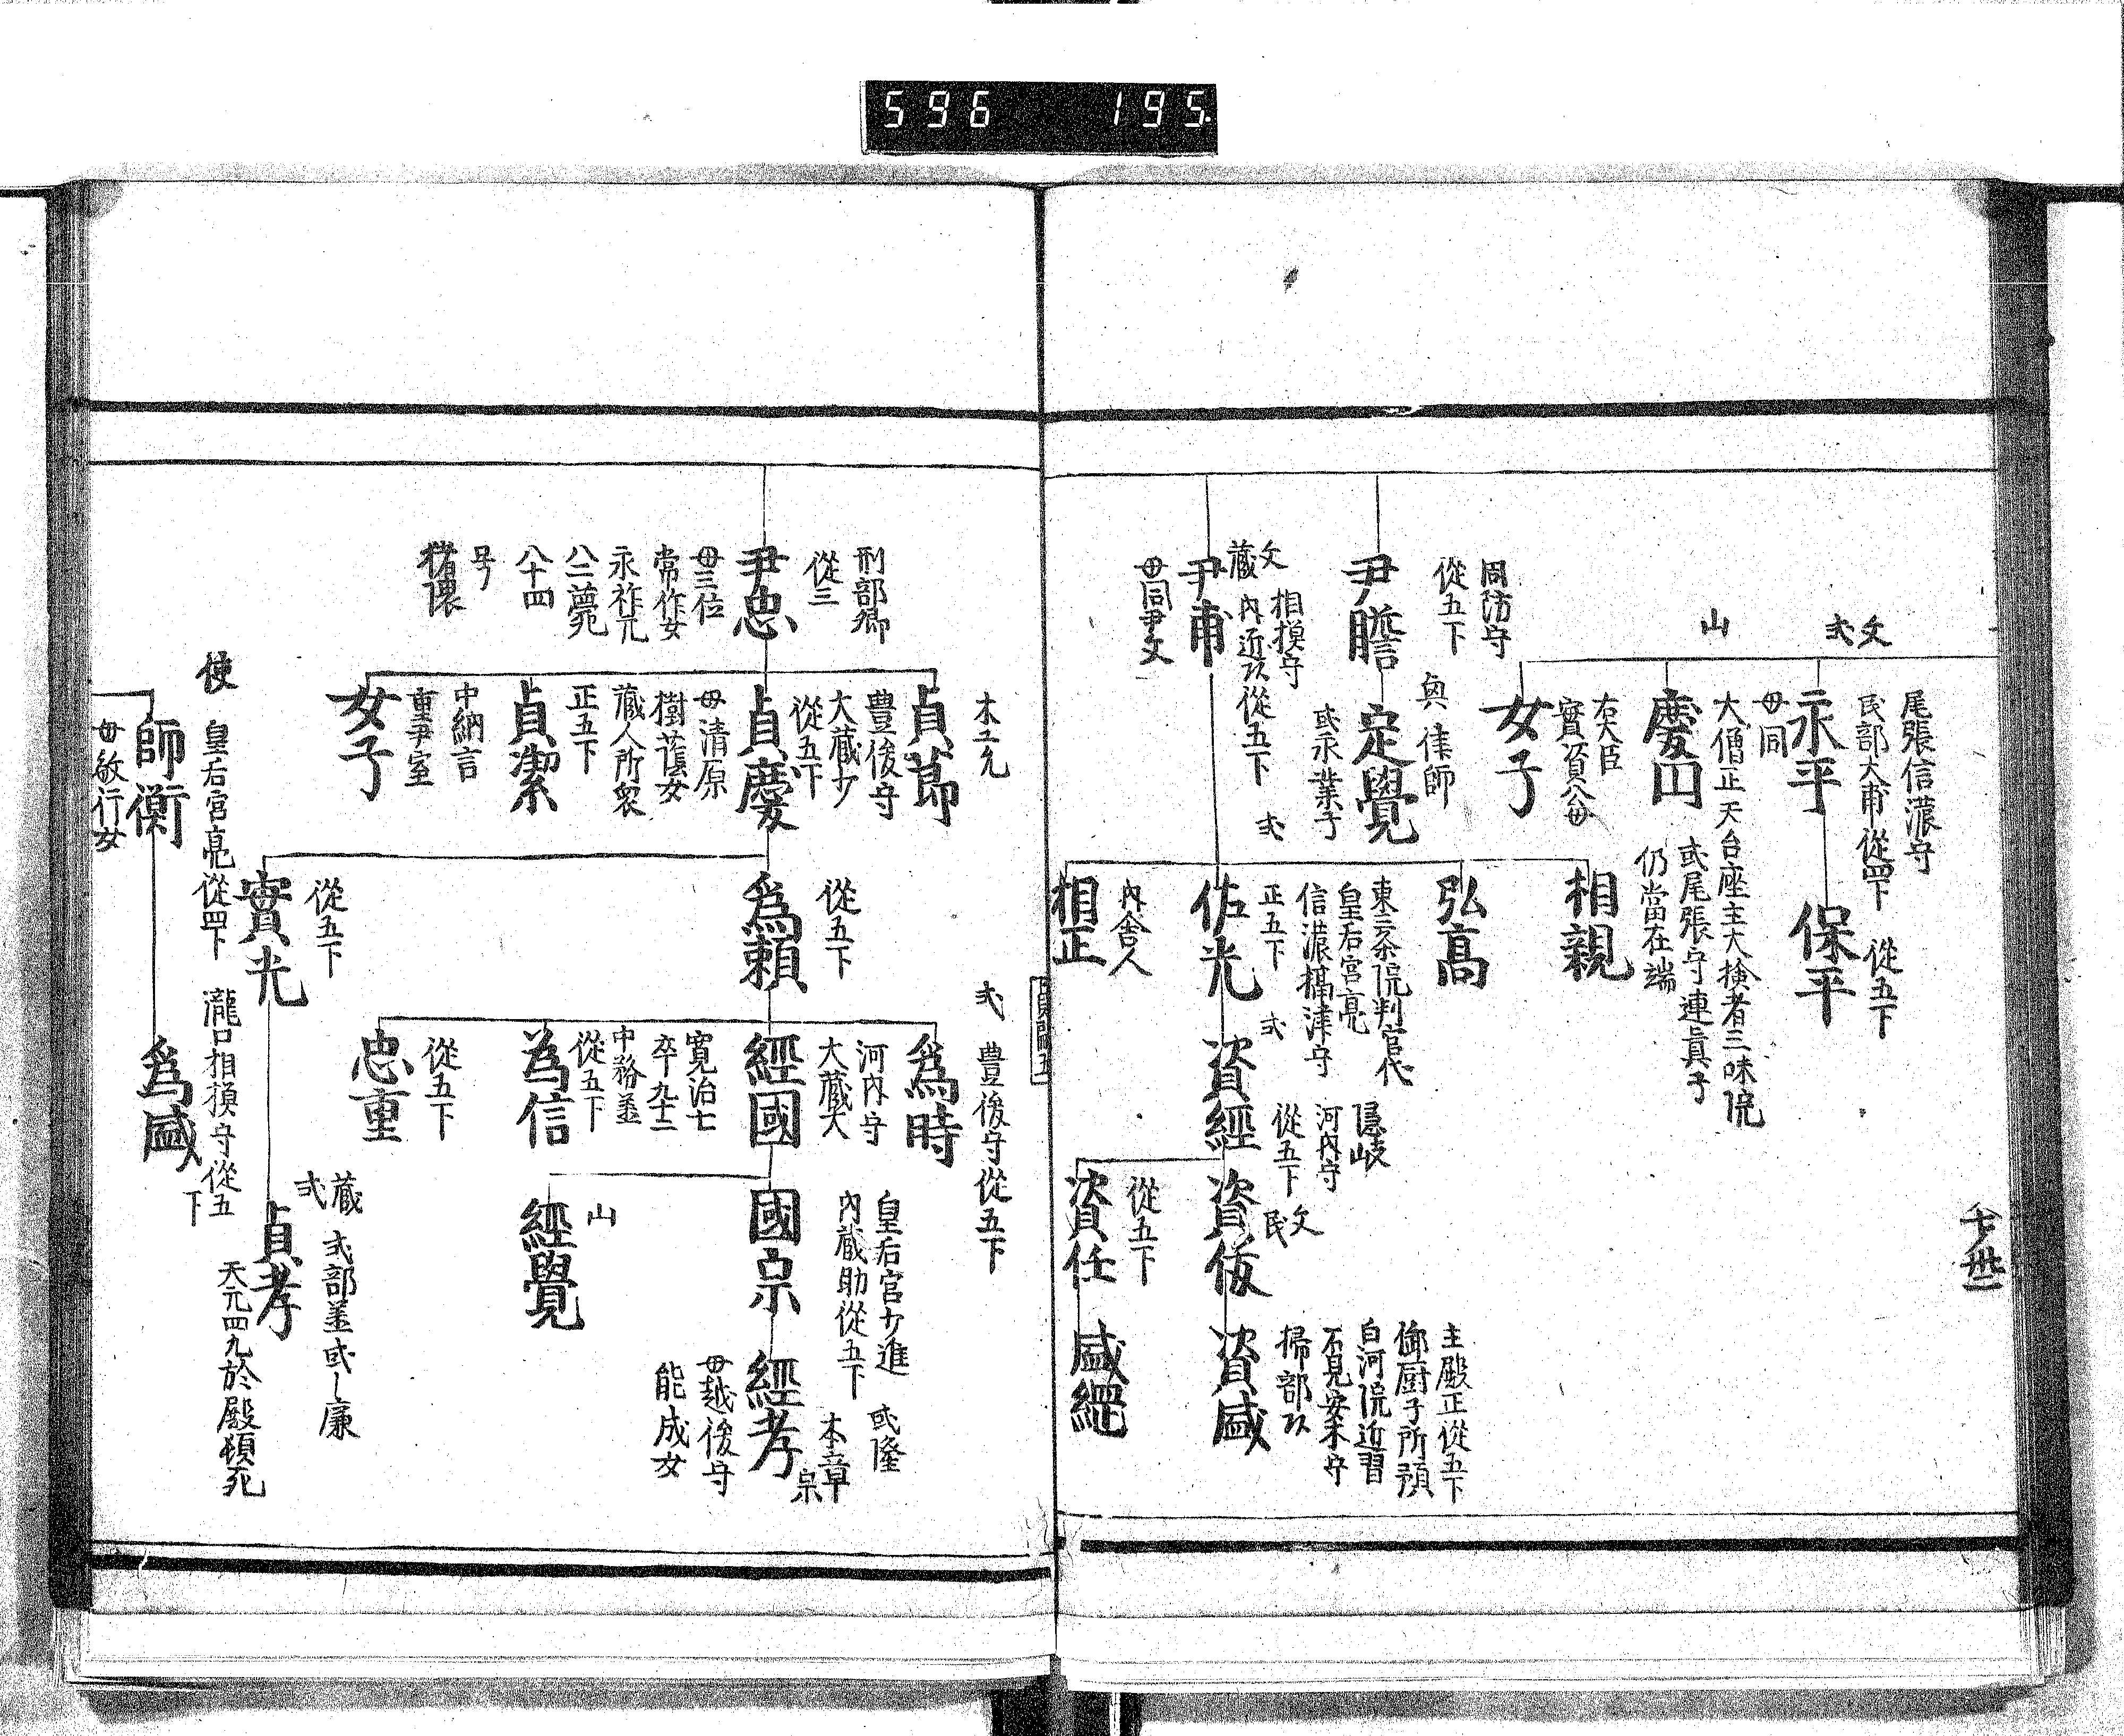 596 195.
尾張信濃守
民部大甫從四下
文
弍
永平
母同
從五下
保平
山
大僧正 天台座主大検者三味院
慶円
或尾張守連眞子
仍當在端
右大臣
實資公母
女子
相親
周防守
從五下
尹瞻
奥 律師
定覺
或永業子
弘高
文
藏
相摸守
内近从從五下
尹甫
母同尹文
弍
東三条院判官代
皇后宮亮
信濃摂津守
正五下
佐光
内舎人
相正
弍
隠岐
河内守
從五下
資經
文
民
資俊
主殿正從五下
御厨子所預
白河院近習
石見安木守
掃部从
資盛
從五下
資任
盛經
十世二
刑部卿
從三
尹忠
母三位
常作女
永祚元
八二薨
八十四
号
猪隈
木工允
貞節
豊後守
大藏少
從五下
貞慶
母清原
樹蔭女
藏人所衆
正五下
貞潔
中納言
重尹室
女子
從五下
爲頼
從五下
實光
弍 豊後守從五下
爲時
河内守
大藏大
經國
寛治七
卒九十二
中務丞
從五下
為信
從五下
忠重
皇后宮少進
内藏助從五下
國宗
山
經覺
或隆
本章
宗
經孝
母越後守
能成女
藏
弍
弍部丞或廉
貞孝
天元四九於殿頓死
使 皇后宮亮從四下
師衡
母敏行女
瀧口相摸守從五
下
爲盛